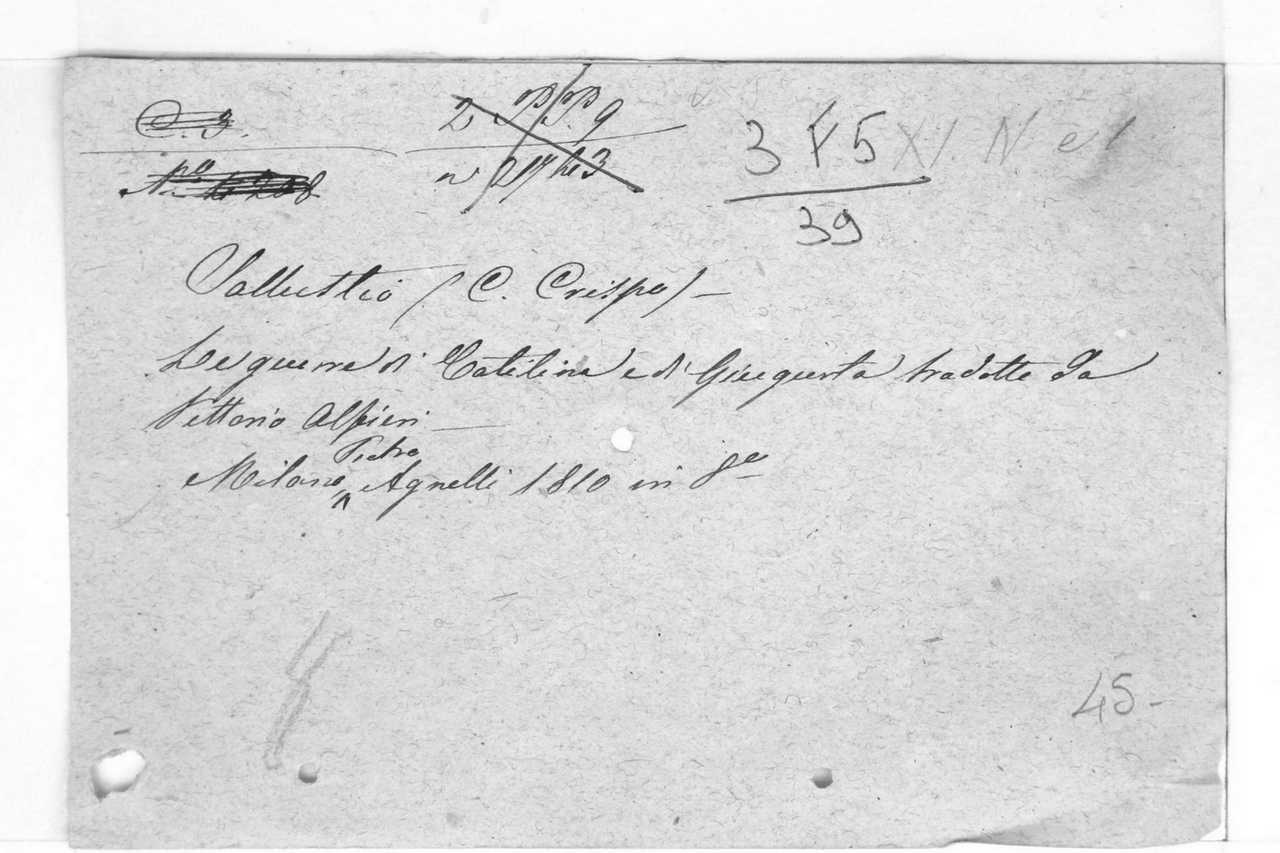 C. 3.
3 F 5 XI N
39
Sallustio (C. Crispo) —
Le guerre di Catilina e di Giugurta tradotte da
Vittorio Alfieri —
Pietro
Milano ^ Agnelli 1810 in 8°
45-